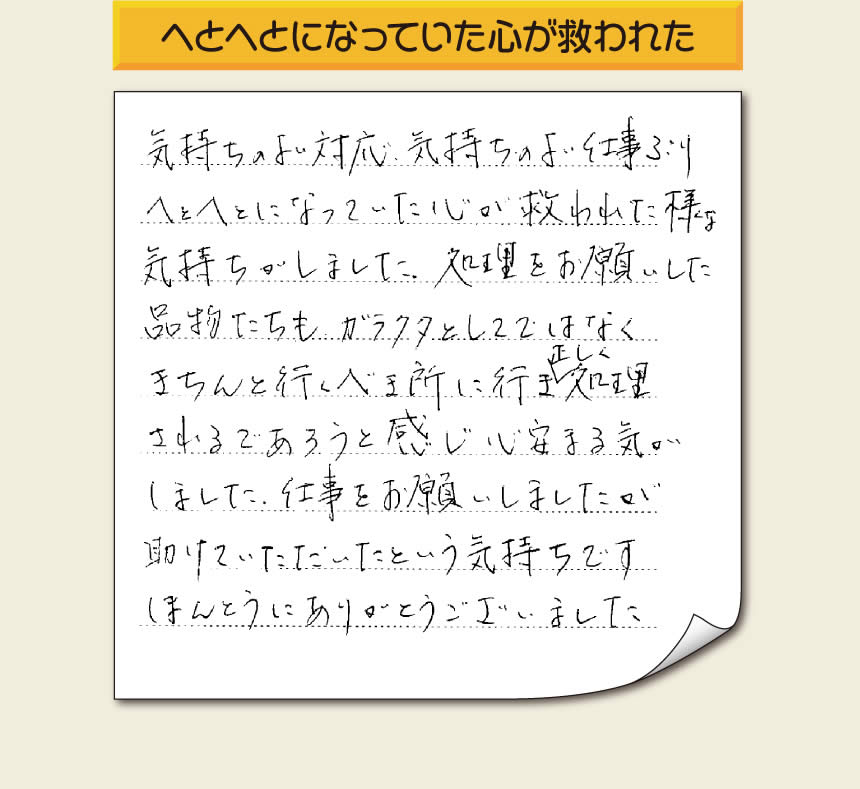 へとへとになっていた心が救われた
気持ちのよい対応、気持ちのよい仕事ぶり
へとへとになっていた心が救われた様な
気持ちがしました。処理をお願いした
品物たちも ガラクタとしてではなく
きちんと行くべき所に行き正しく処理
されるであろうと感じ心安まる気が
しました。仕事をお願いしましたが
助けていただいたという気持ちです
ほんとうにありがとうございました